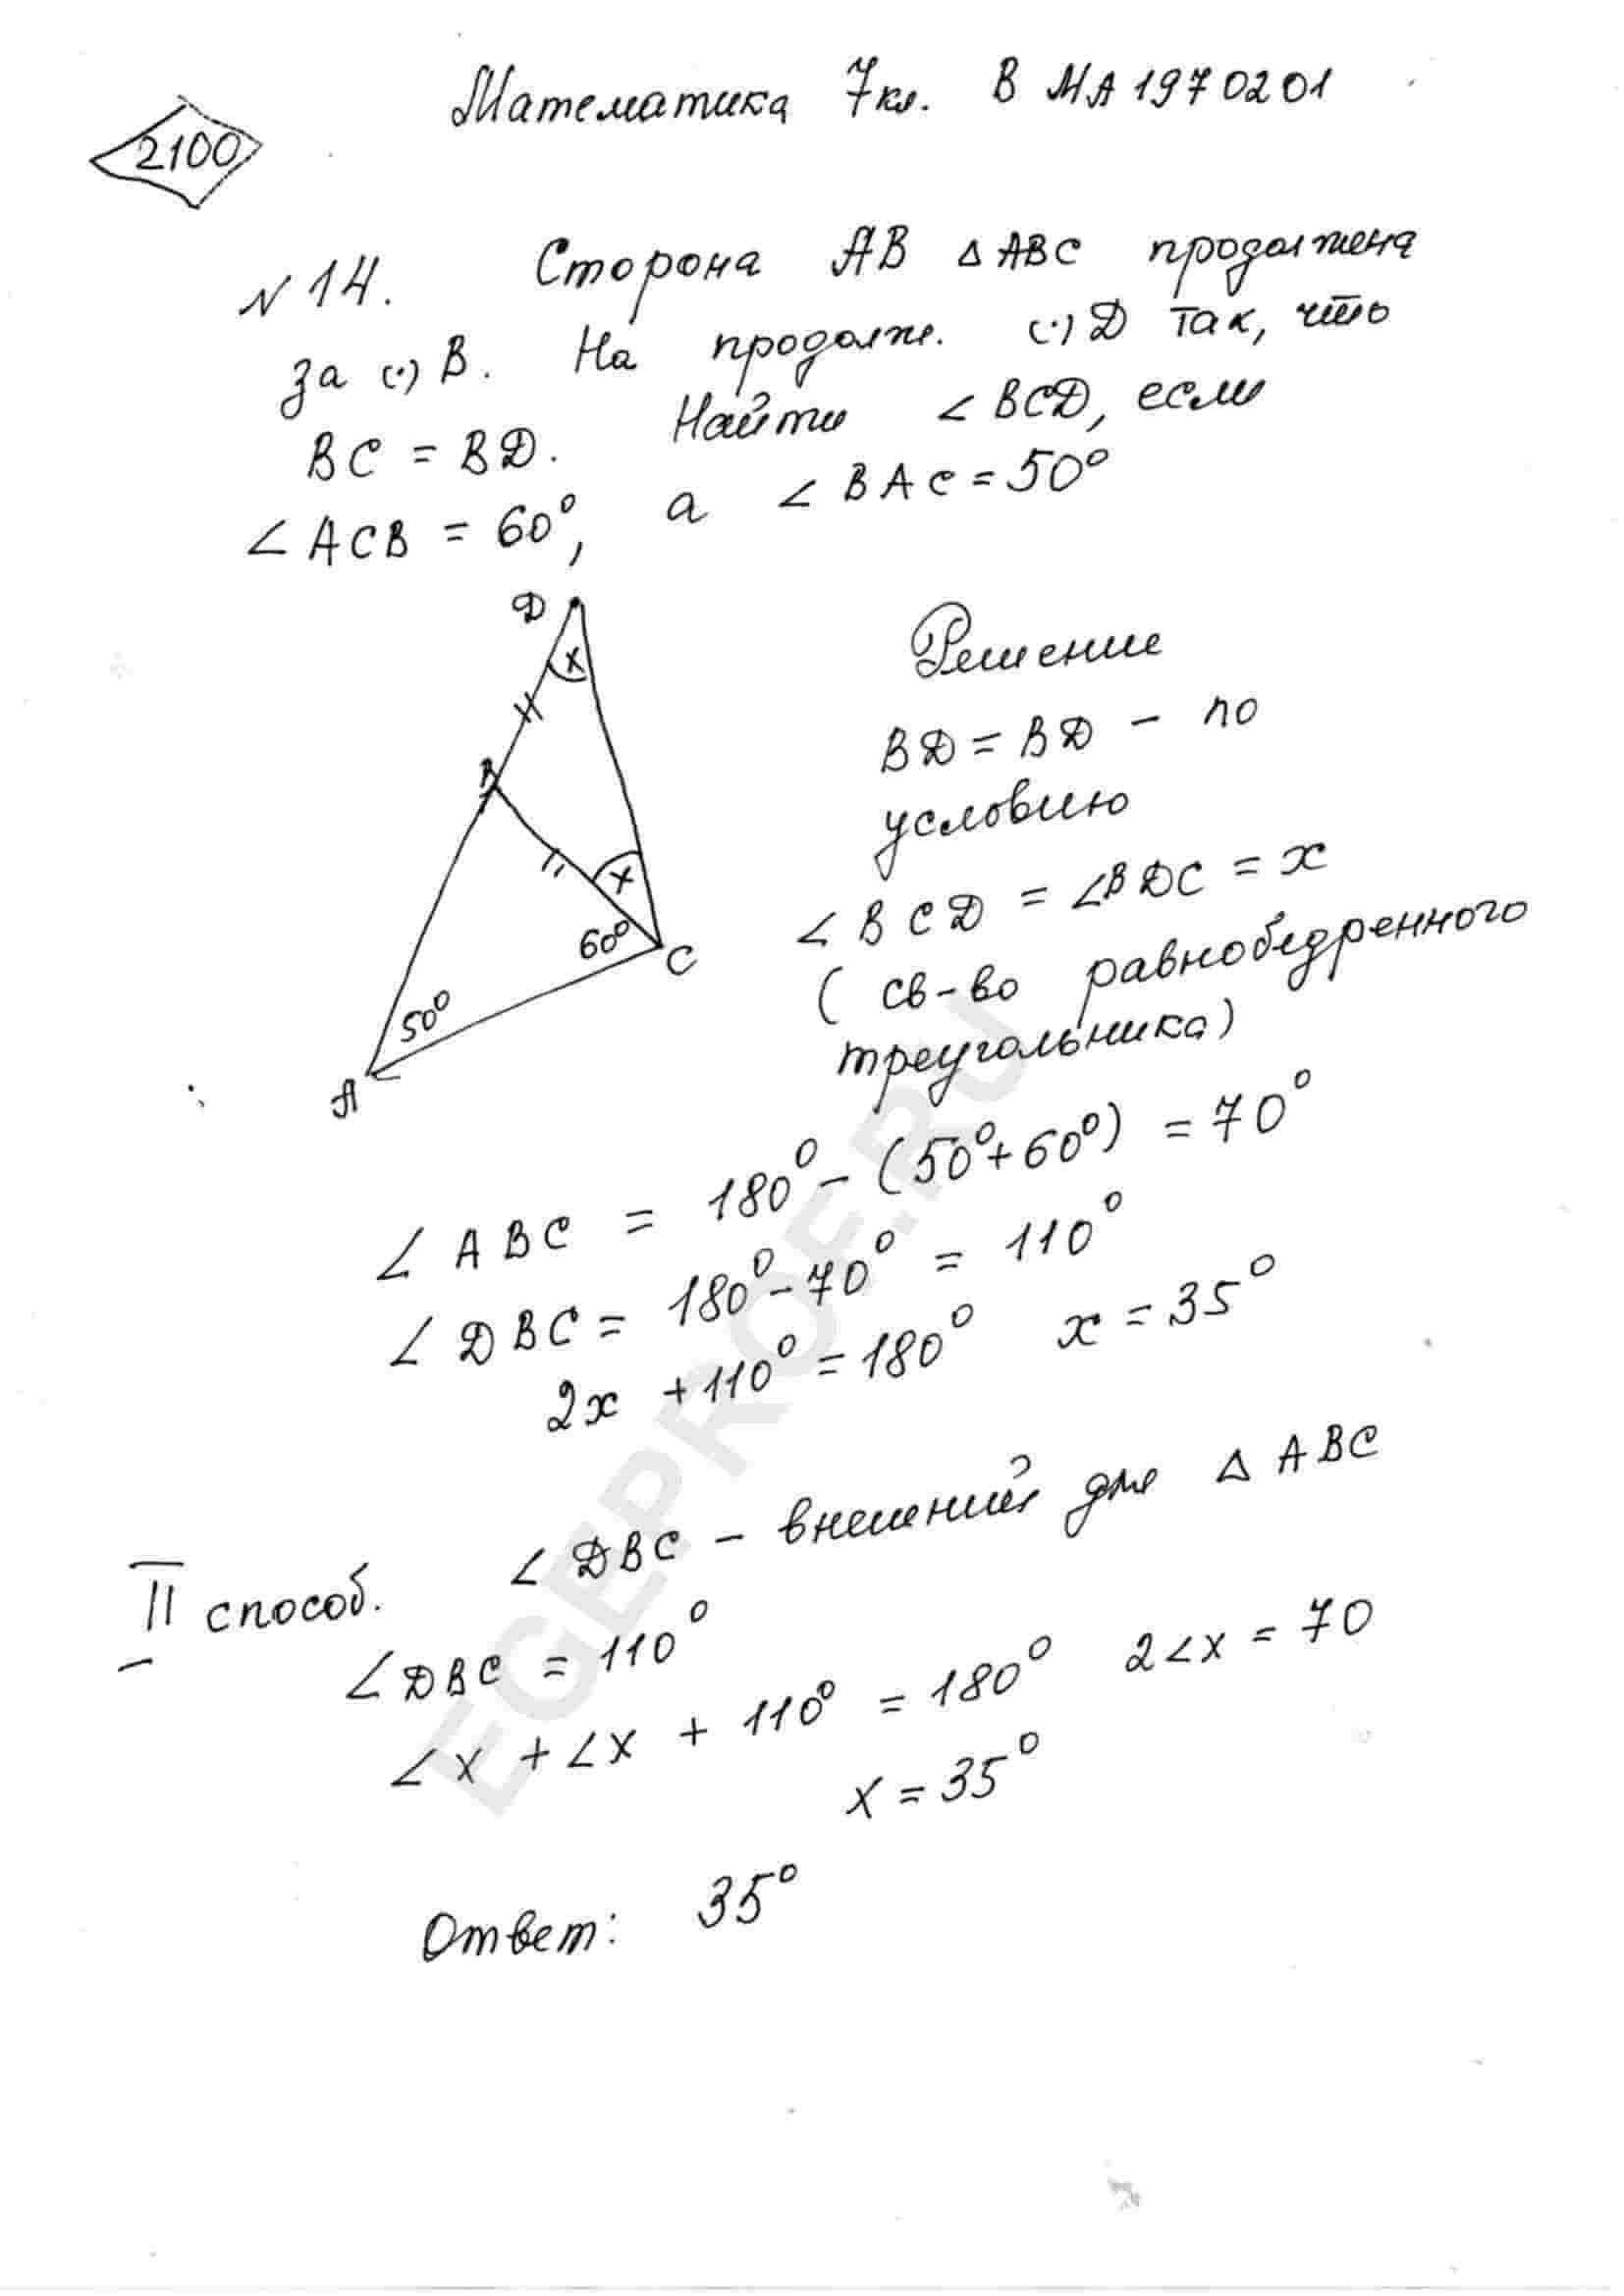 Математика 7кл. В МА1970201
2100
N14. Сторона АВ △АВС продолжена
за (·) В. На продолж. (·) D так, что
ВС = ВD. Найти ∠ВСD, если
∠АСВ = 60°, а ∠ВАС = 50°
D
x
В
x
60°
С
50°
А
Решение
ВD = ВD – по
условию
∠ВСD = ∠ВDС = x
( св-во равнобедренного
треугольника)
∠АВС = 180° – (50°+60°) = 70°
∠DВС = 180° – 70° = 110°
2x + 110° = 180° x = 35°
II способ. ∠DВС – внешний для △АВС
∠DВС = 110°
∠x + ∠x + 110° = 180° 2∠x = 70
x = 35°
Ответ: 35°
EGEPROF.RU